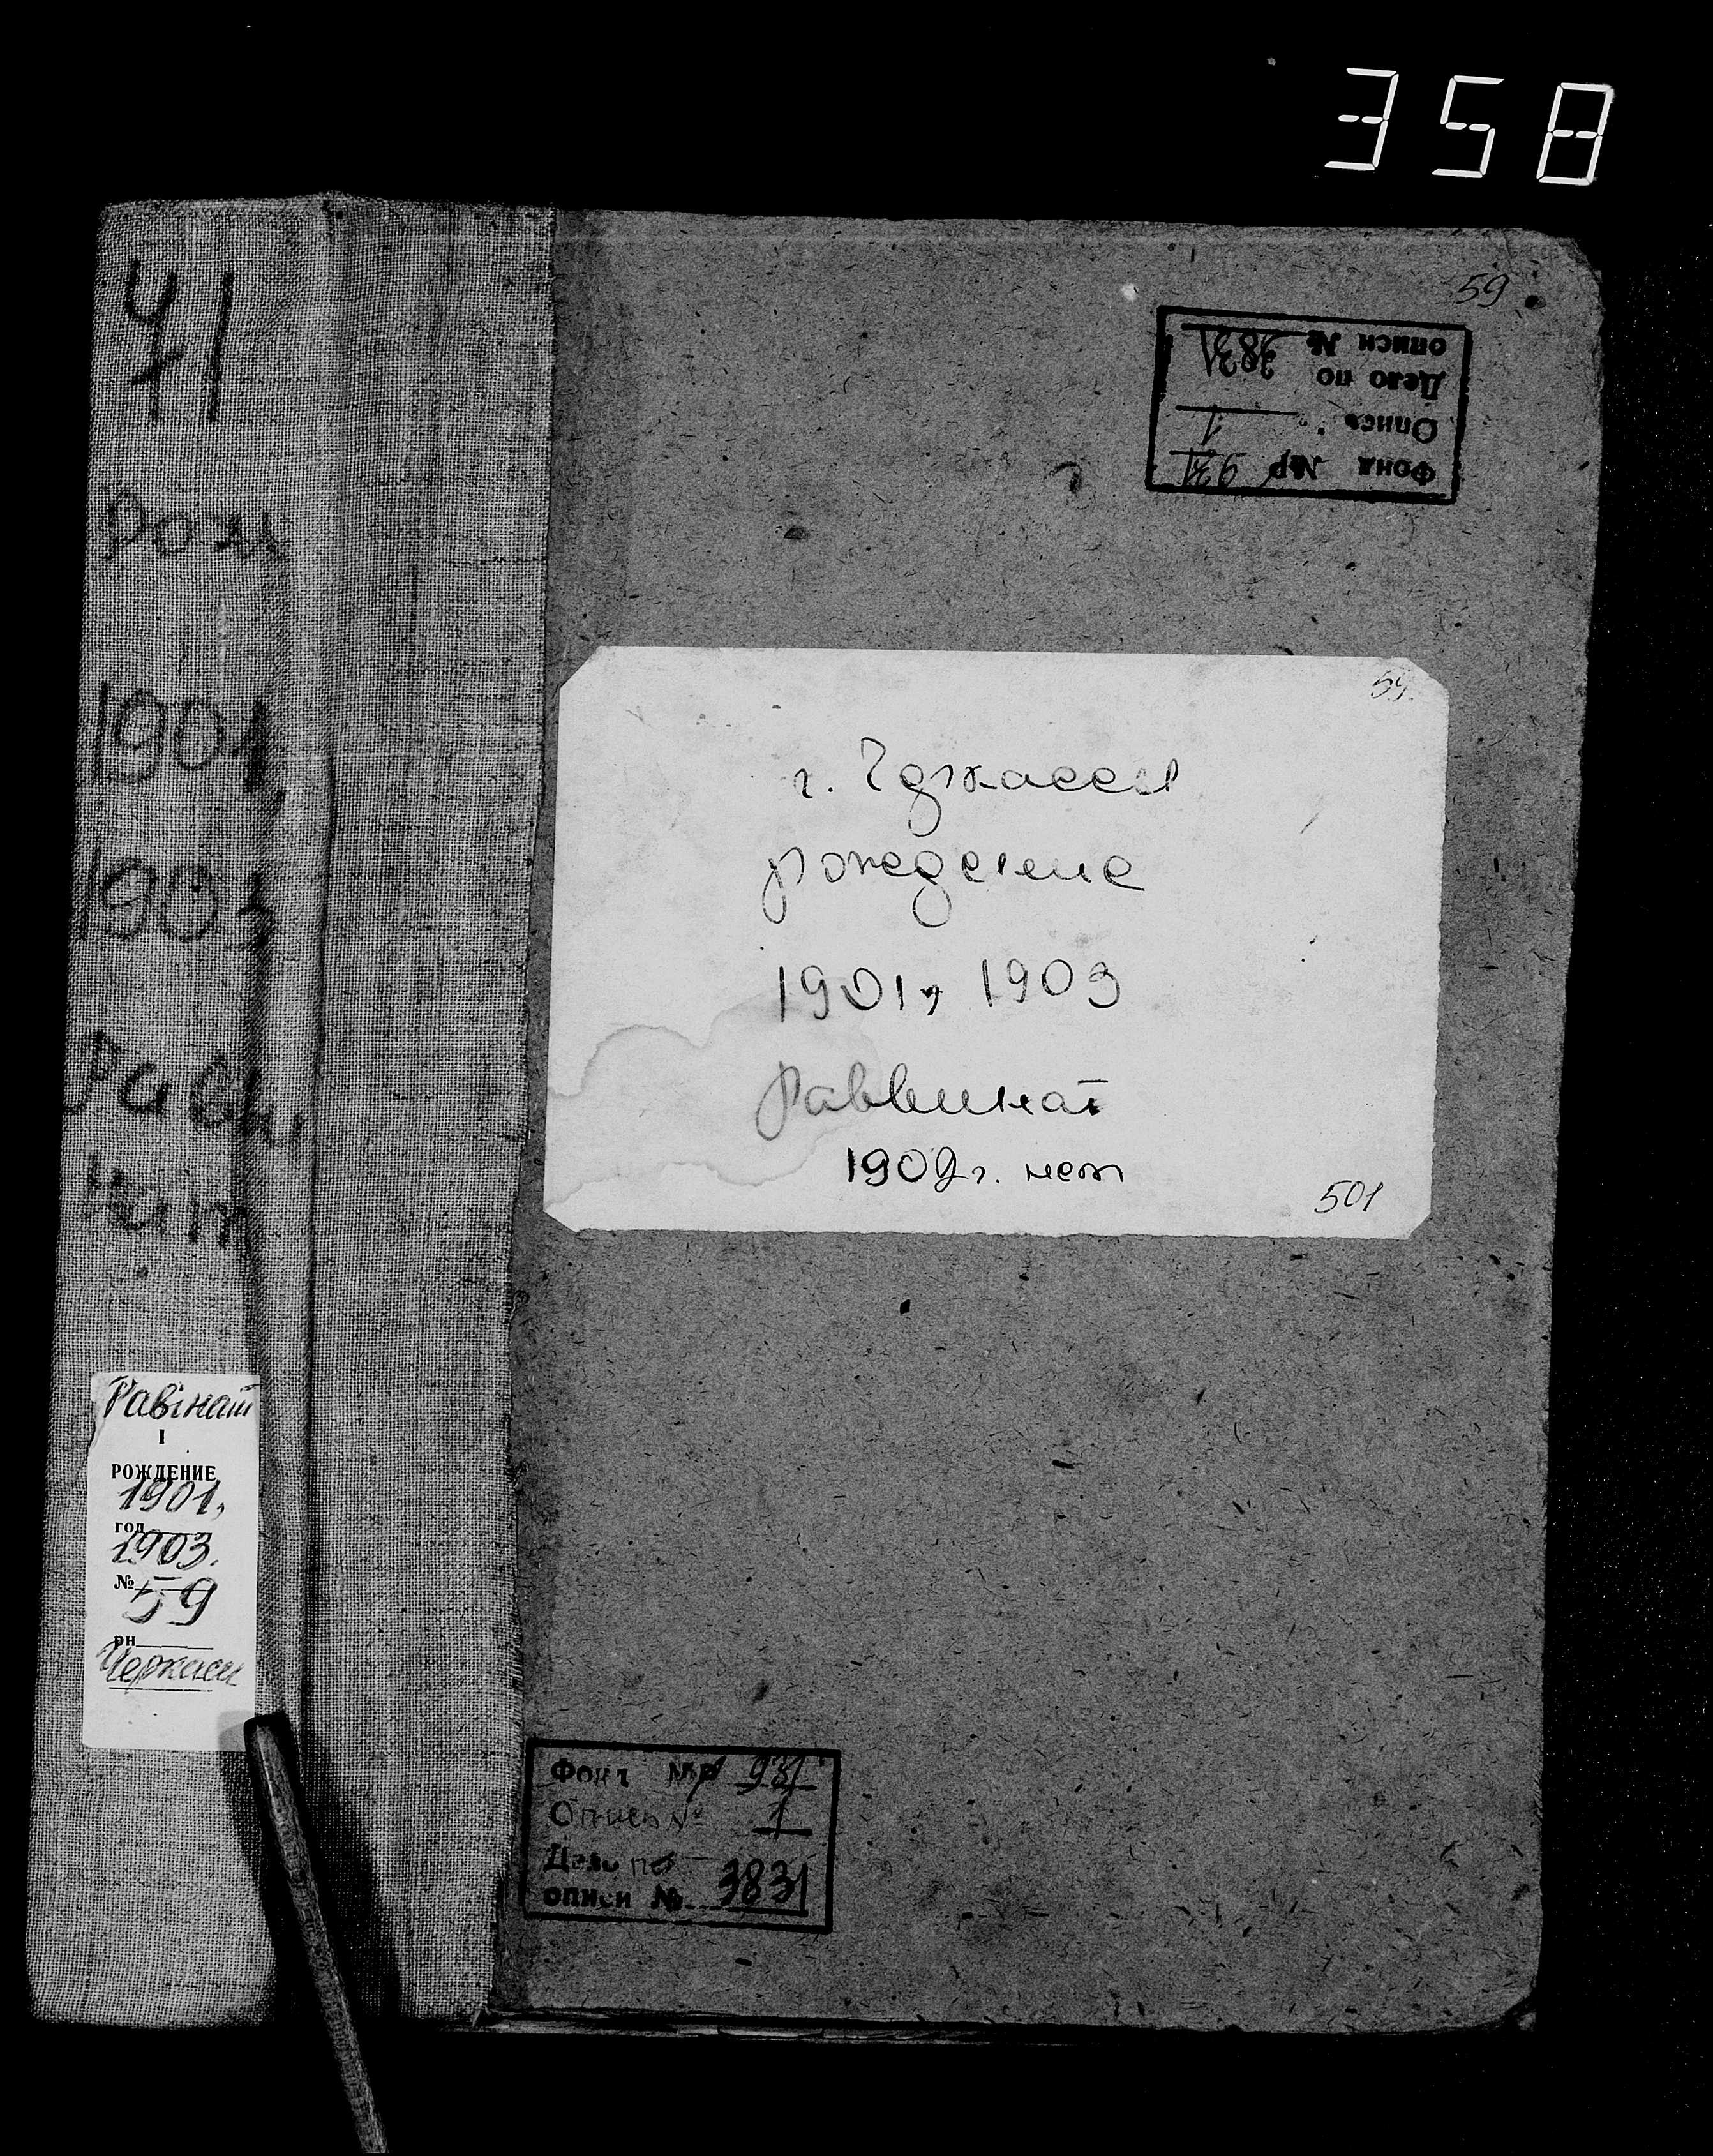 358
59
Фонд №Р 931
Опись 1
Дело по
описи № 3831
59
г. Черкассы
рождение
1901, 1903
Раввинат
1902 г. нет
501
Фонд №Р 931
Опись № 1
Дело по
описи № 3831
41
1901,
1903
Равви
нат
Равінат
I
РОЖДЕНИЕ
1901,
год
1903.
№ 59
рн
Черкаси